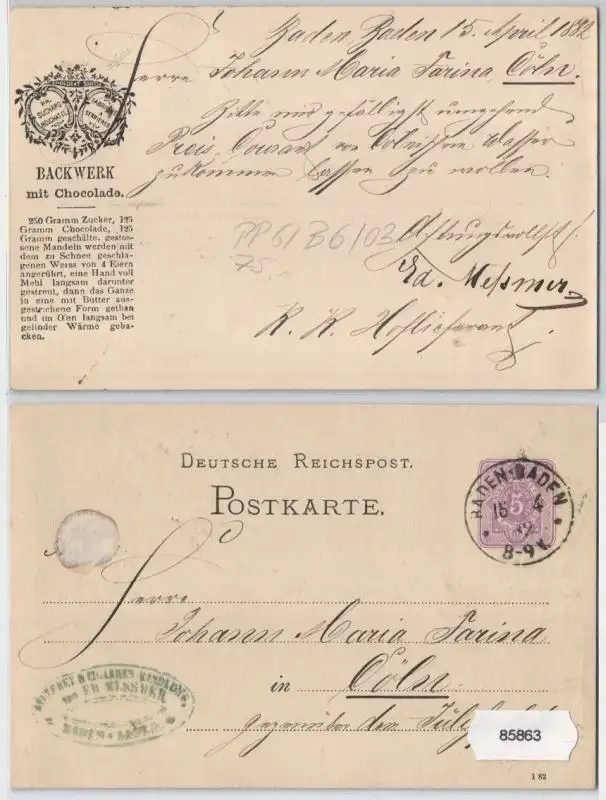 Baden Baden 15. April 1882
Herrn Johann Maria Farina, Cöln.
Bitte mir gefälligst umgehend
Preis Courant von Cölnischem Wasser
zukommen lassen zu wollen.
Achtungsvollst
Ed. Meßmer
K. K. Hoflieferant
CHOCOLAT SUISSE
PH. SUCHARD
NEUCHATEL
BACKWERK
mit Chocolade.
250 Gramm Zucker, 125
Gramm Chocolade, 125
Gramm geschälte, gestos-
sene Mandeln werden mit
dem zu Schnee geschla-
genen Weiss von 4 Eiern
angerührt, eine Hand voll
Mehl langsam darunter
gestreut, dann das Ganze
in eine mit Butter aus-
gestrichene Form gethan
und im Ofen langsam bei
gelinder Wärme geba-
cken.
PP 61 B6/03
75
DEUTSCHE REICHSPOST.
POSTKARTE.
BADEN-BADEN
8-9V.
5
Herrn
Johann Maria Farina
in Cöln
gegenüber dem
& CIGARREN HANDLUNG
von ED MESSMER
BADEN-BADEN
85863
1 82